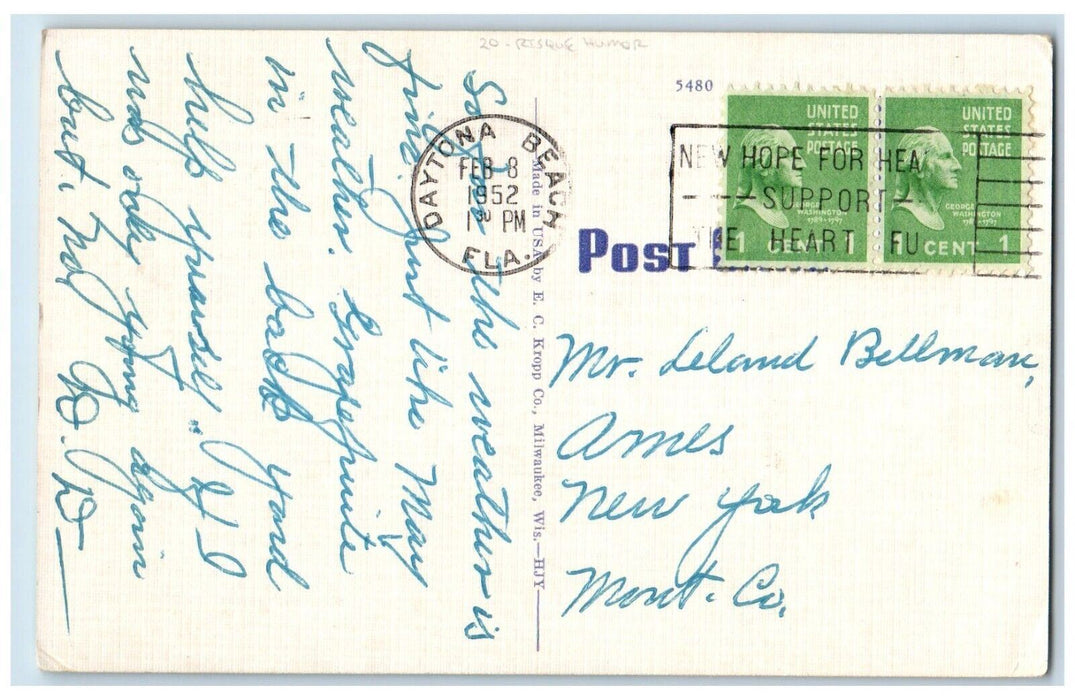 20 - RISQUE HUMOR
5480
UNITED STATES POSTAGE
GEORGE WASHINGTON 1789-1797
1 CENT 1
UNITED STATES POSTAGE
GEORGE WASHINGTON 1789-1797
1 CENT 1
DAYTONA BEACH
FEB 8
1952
1 30 PM
FLA.
NEW HOPE FOR HEA
SUPPORT
THE HEART FU
POST
Made in USA by E. C. Kropp Co., Milwaukee, Wis.—HJY
Say Jim The weather is
fine. Just like May
weather. Grapefruite
in the back yard
help yourself. If I
was only young again
but. No
Mr. Leland Bellman,
Ames
New York
Mont. Co.